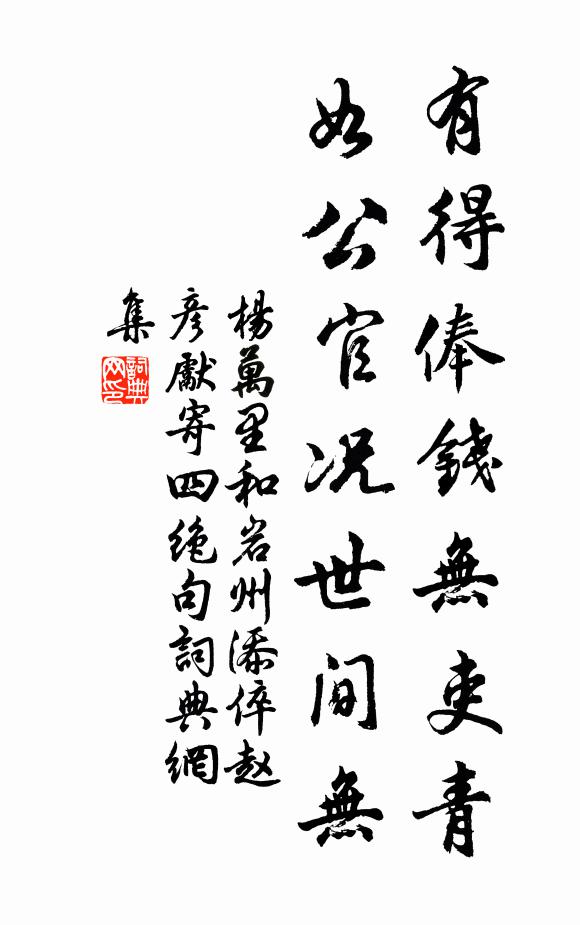 有得俸錢無吏青
如公官況世間無
楊萬里和岩州添倅赵
彦獻寄四绝句詞典網
集
詞典
网印